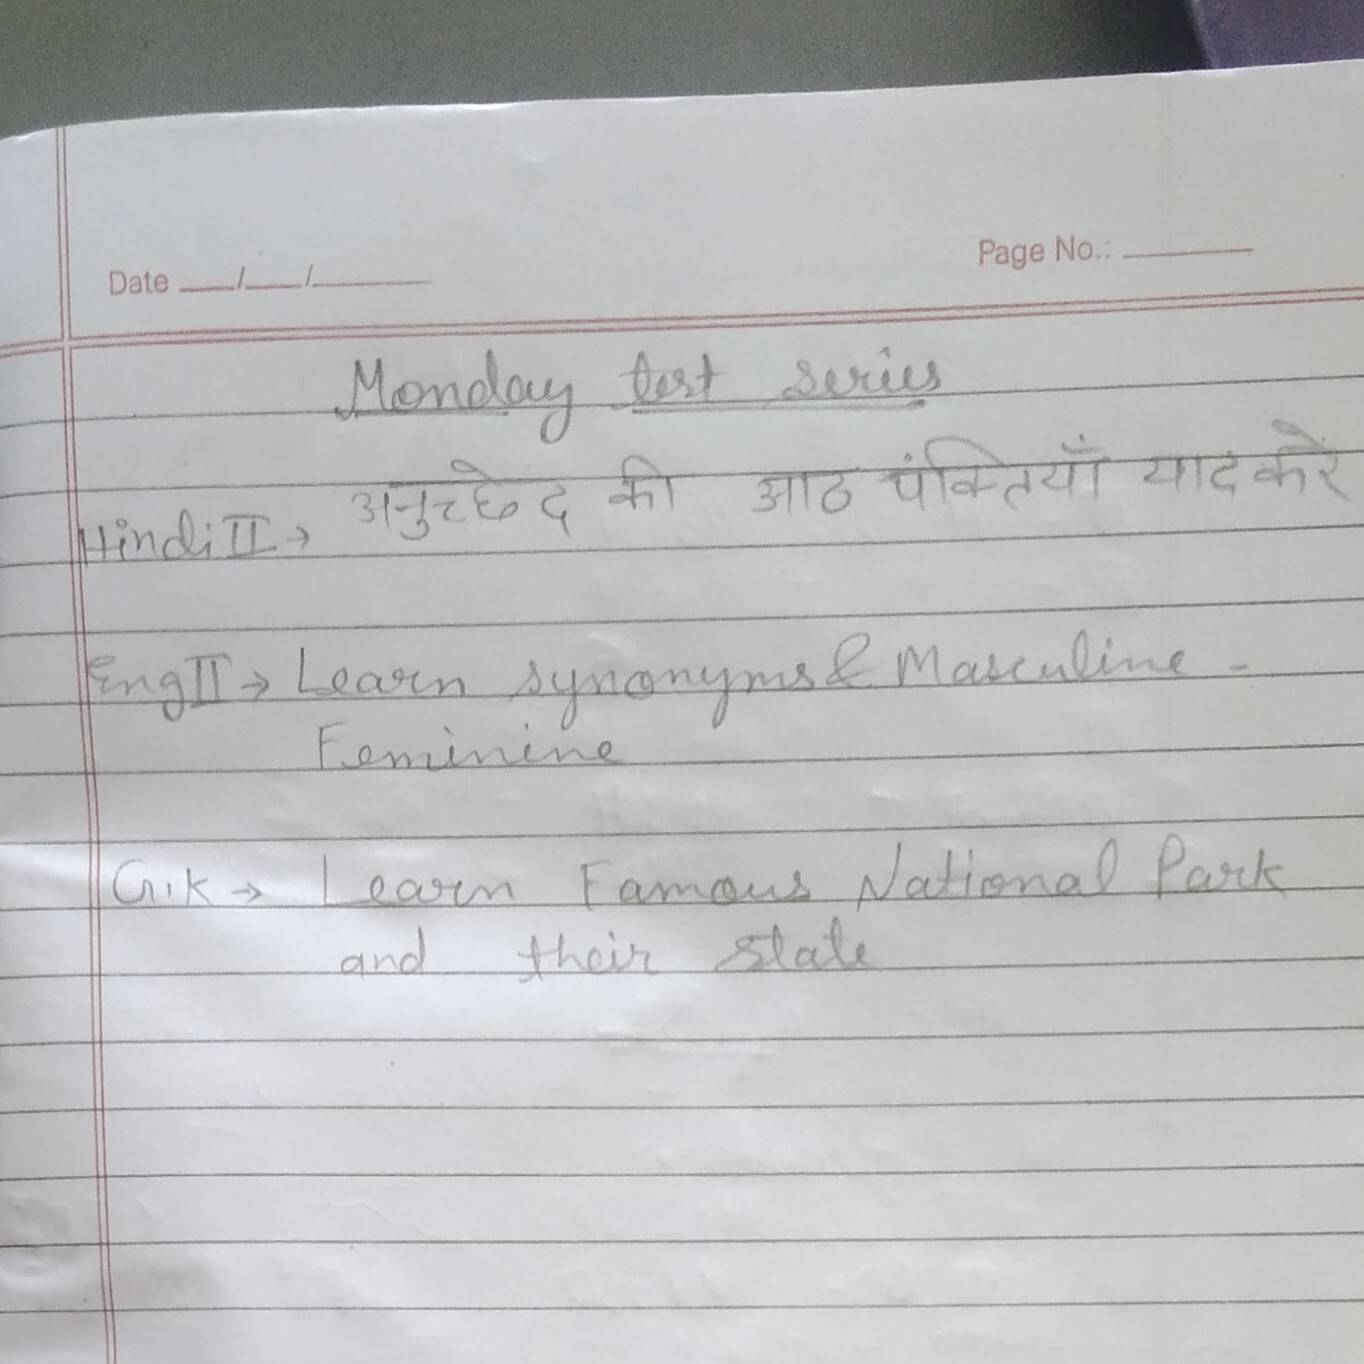 Date __/__/____
Page No.: ____
Monday test series
Hindi II → अनुच्छेद की आठ पंक्तियाँ याद करें
Eng II → Learn synonyms & Masculine -
Feminine
G.K → Learn Famous National Park
and their state